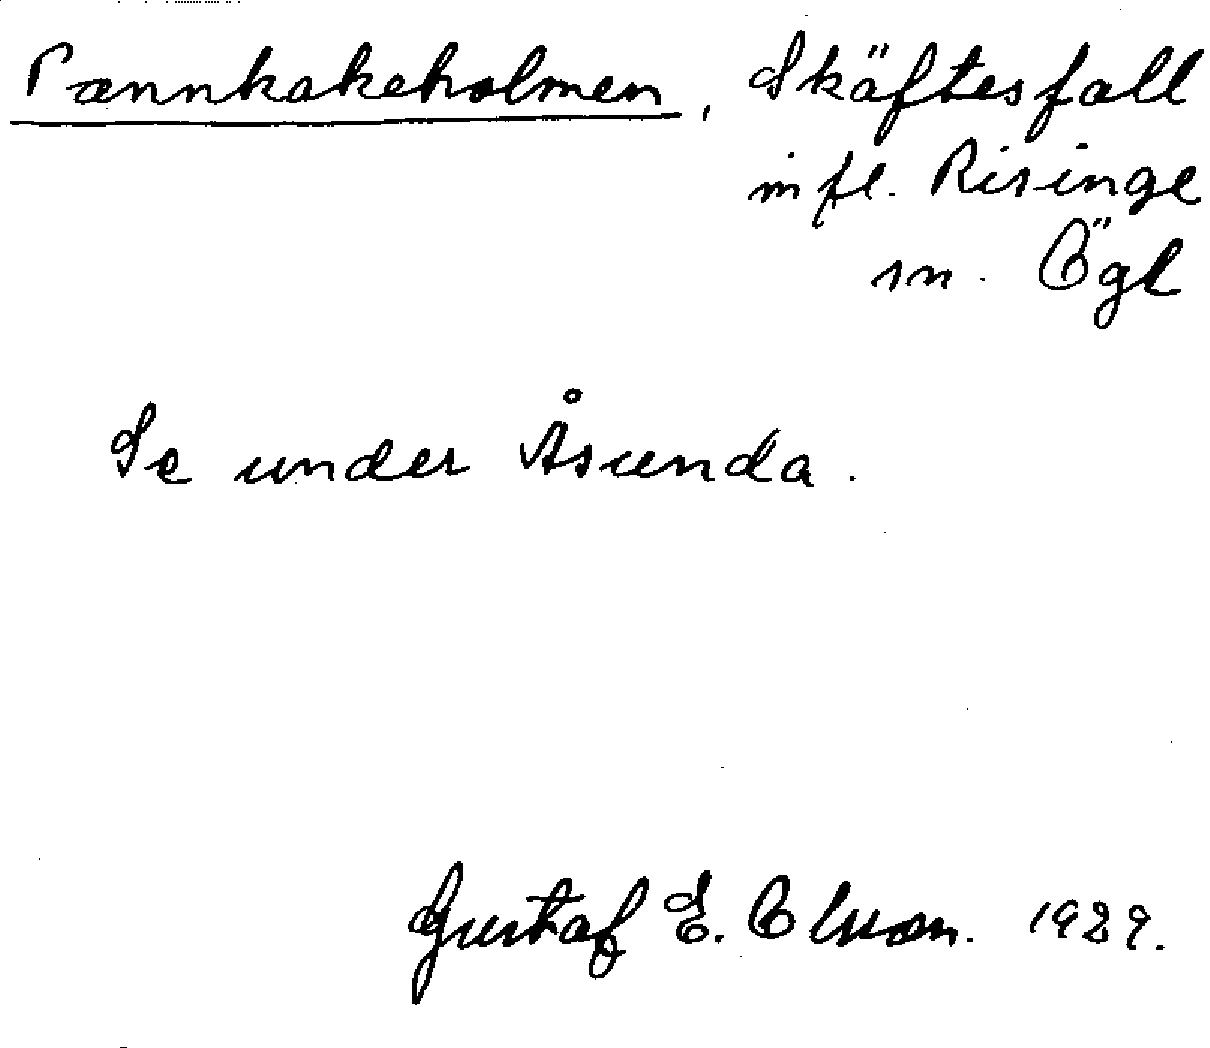 Pannkakeholmen, Skäftesfall
m fl. Risinge
sn. Ögl
Se under Åsunda.
Gustaf E. Olsson. 1929.